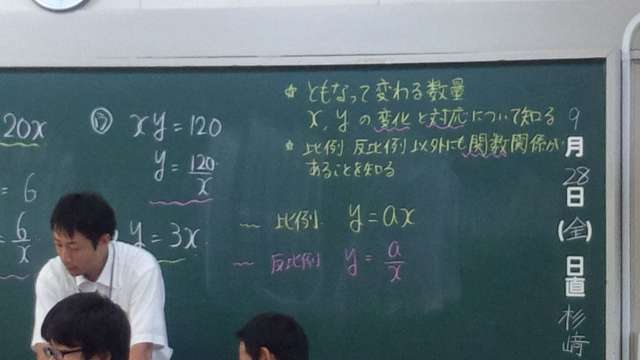 20x
= 6
= 6/x
⑦ xy = 120
y = 120/x
y = 3x
★ ともなって変わる数量
x, yの変化と対応について知る
★ 比例 反比例以外にも関数関係が
あることを知る
〜 比例 y = ax
〜 反比例 y = a/x
9
月
28
日
(金)
日直
杉﨑